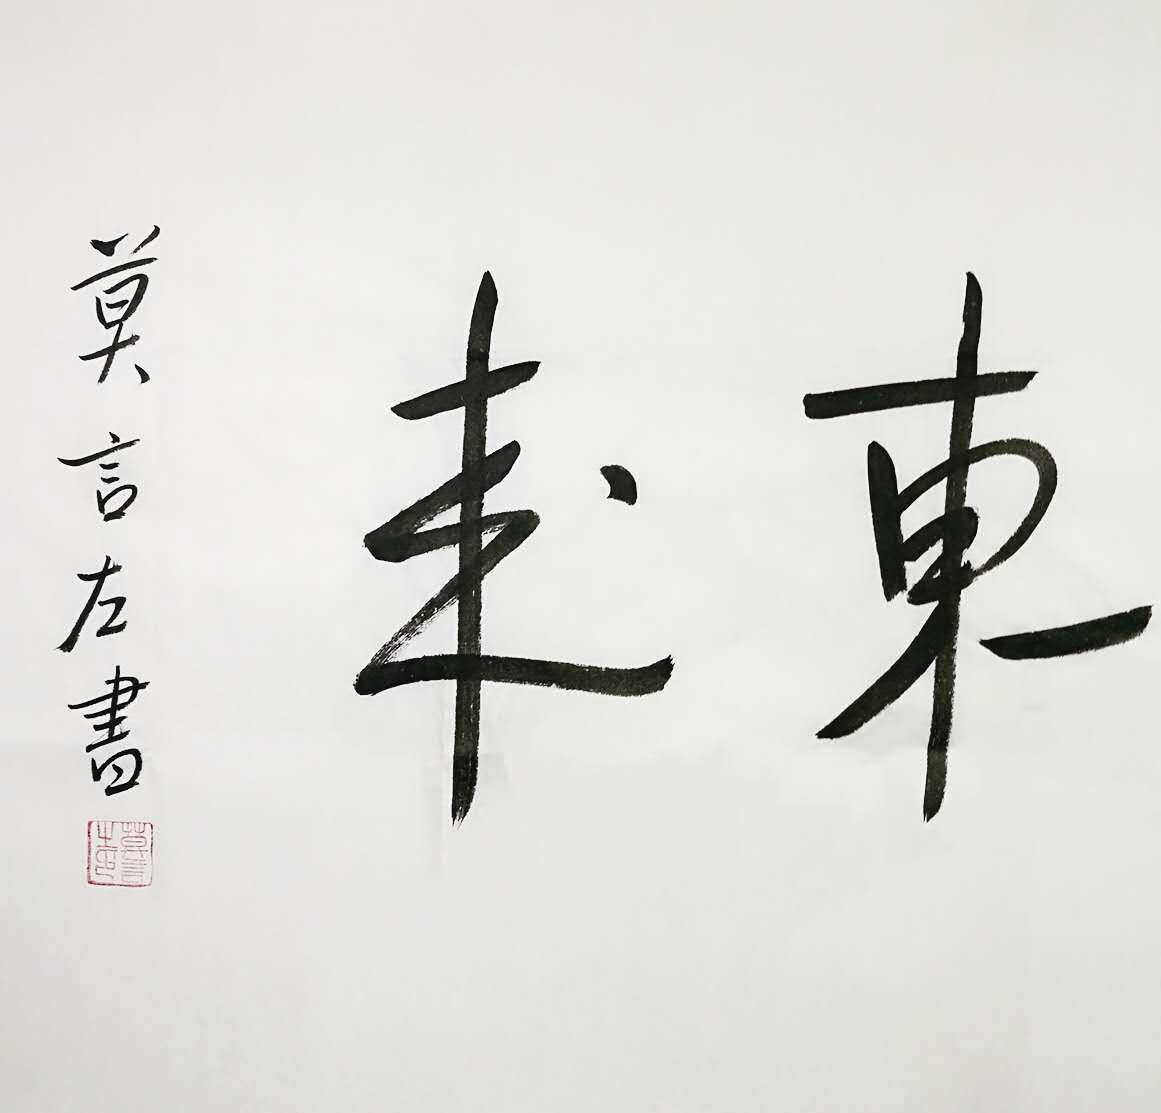 東來
莫言左書
莫言之印